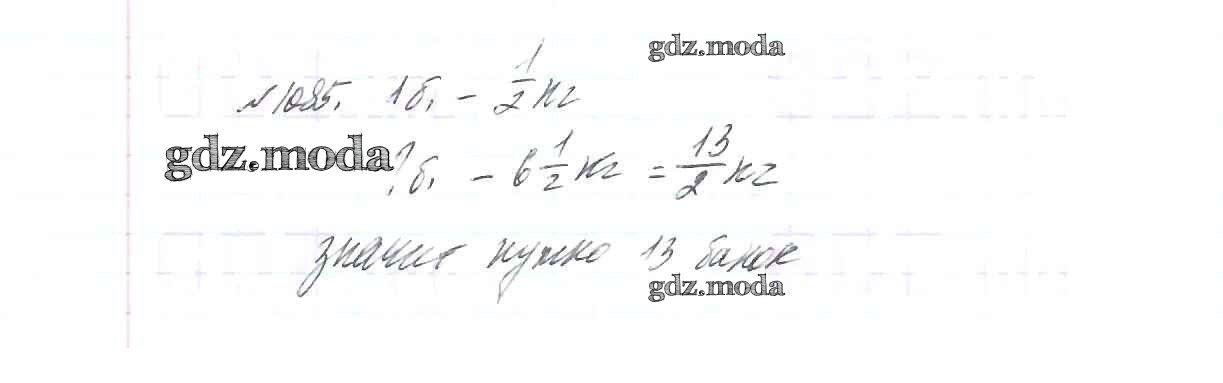 gdz.moda
№1085. 1б. - 1/2 кг
gdz.moda
?б. - 6 1/2 кг = 13/2 кг
значит нужно 13 банок
gdz.moda